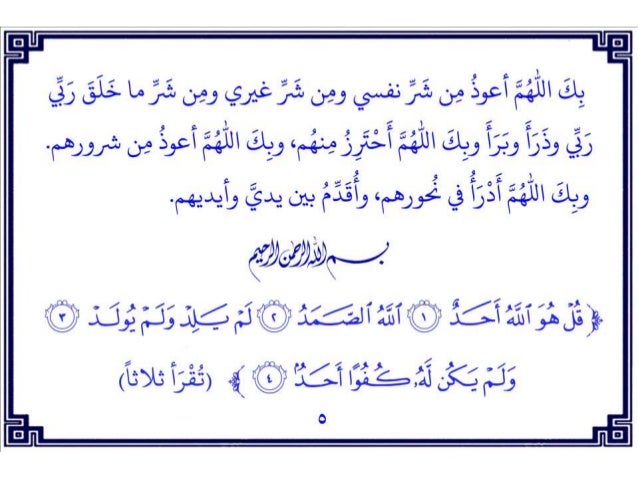 بِكَ اللّٰهُمَّ أعوذُ مِن شَرِّ نفسي ومِن شَرِّ غيري ومِن شَرِّ ما خَلَقَ رَبِّي
رَبِّي وذَرَأَ وبَرَأَ وبِكَ اللّٰهُمَّ أَحْتَرِزُ مِنهُم، وبِكَ اللّٰهُمَّ أعوذُ مِن شرورهم.
وبِكَ اللّٰهُمَّ أَدْرَأُ في نُحورهم، وأُقَدِّمُ بين يديَّ وأيديهم.
بسم الله الرحمن الرحيم
﴿ قُلْ هُوَ ٱللَّهُ أَحَدٌ ١ ٱللَّهُ ٱلصَّمَدُ ٢ لَمْ يَلِدْ وَلَمْ يُولَدْ ٣
وَلَمْ يَكُن لَّهُۥ كُفُوًا أَحَدٌۢ ٤ ﴾ (تُقْرَأ ثلاثاً)
٥